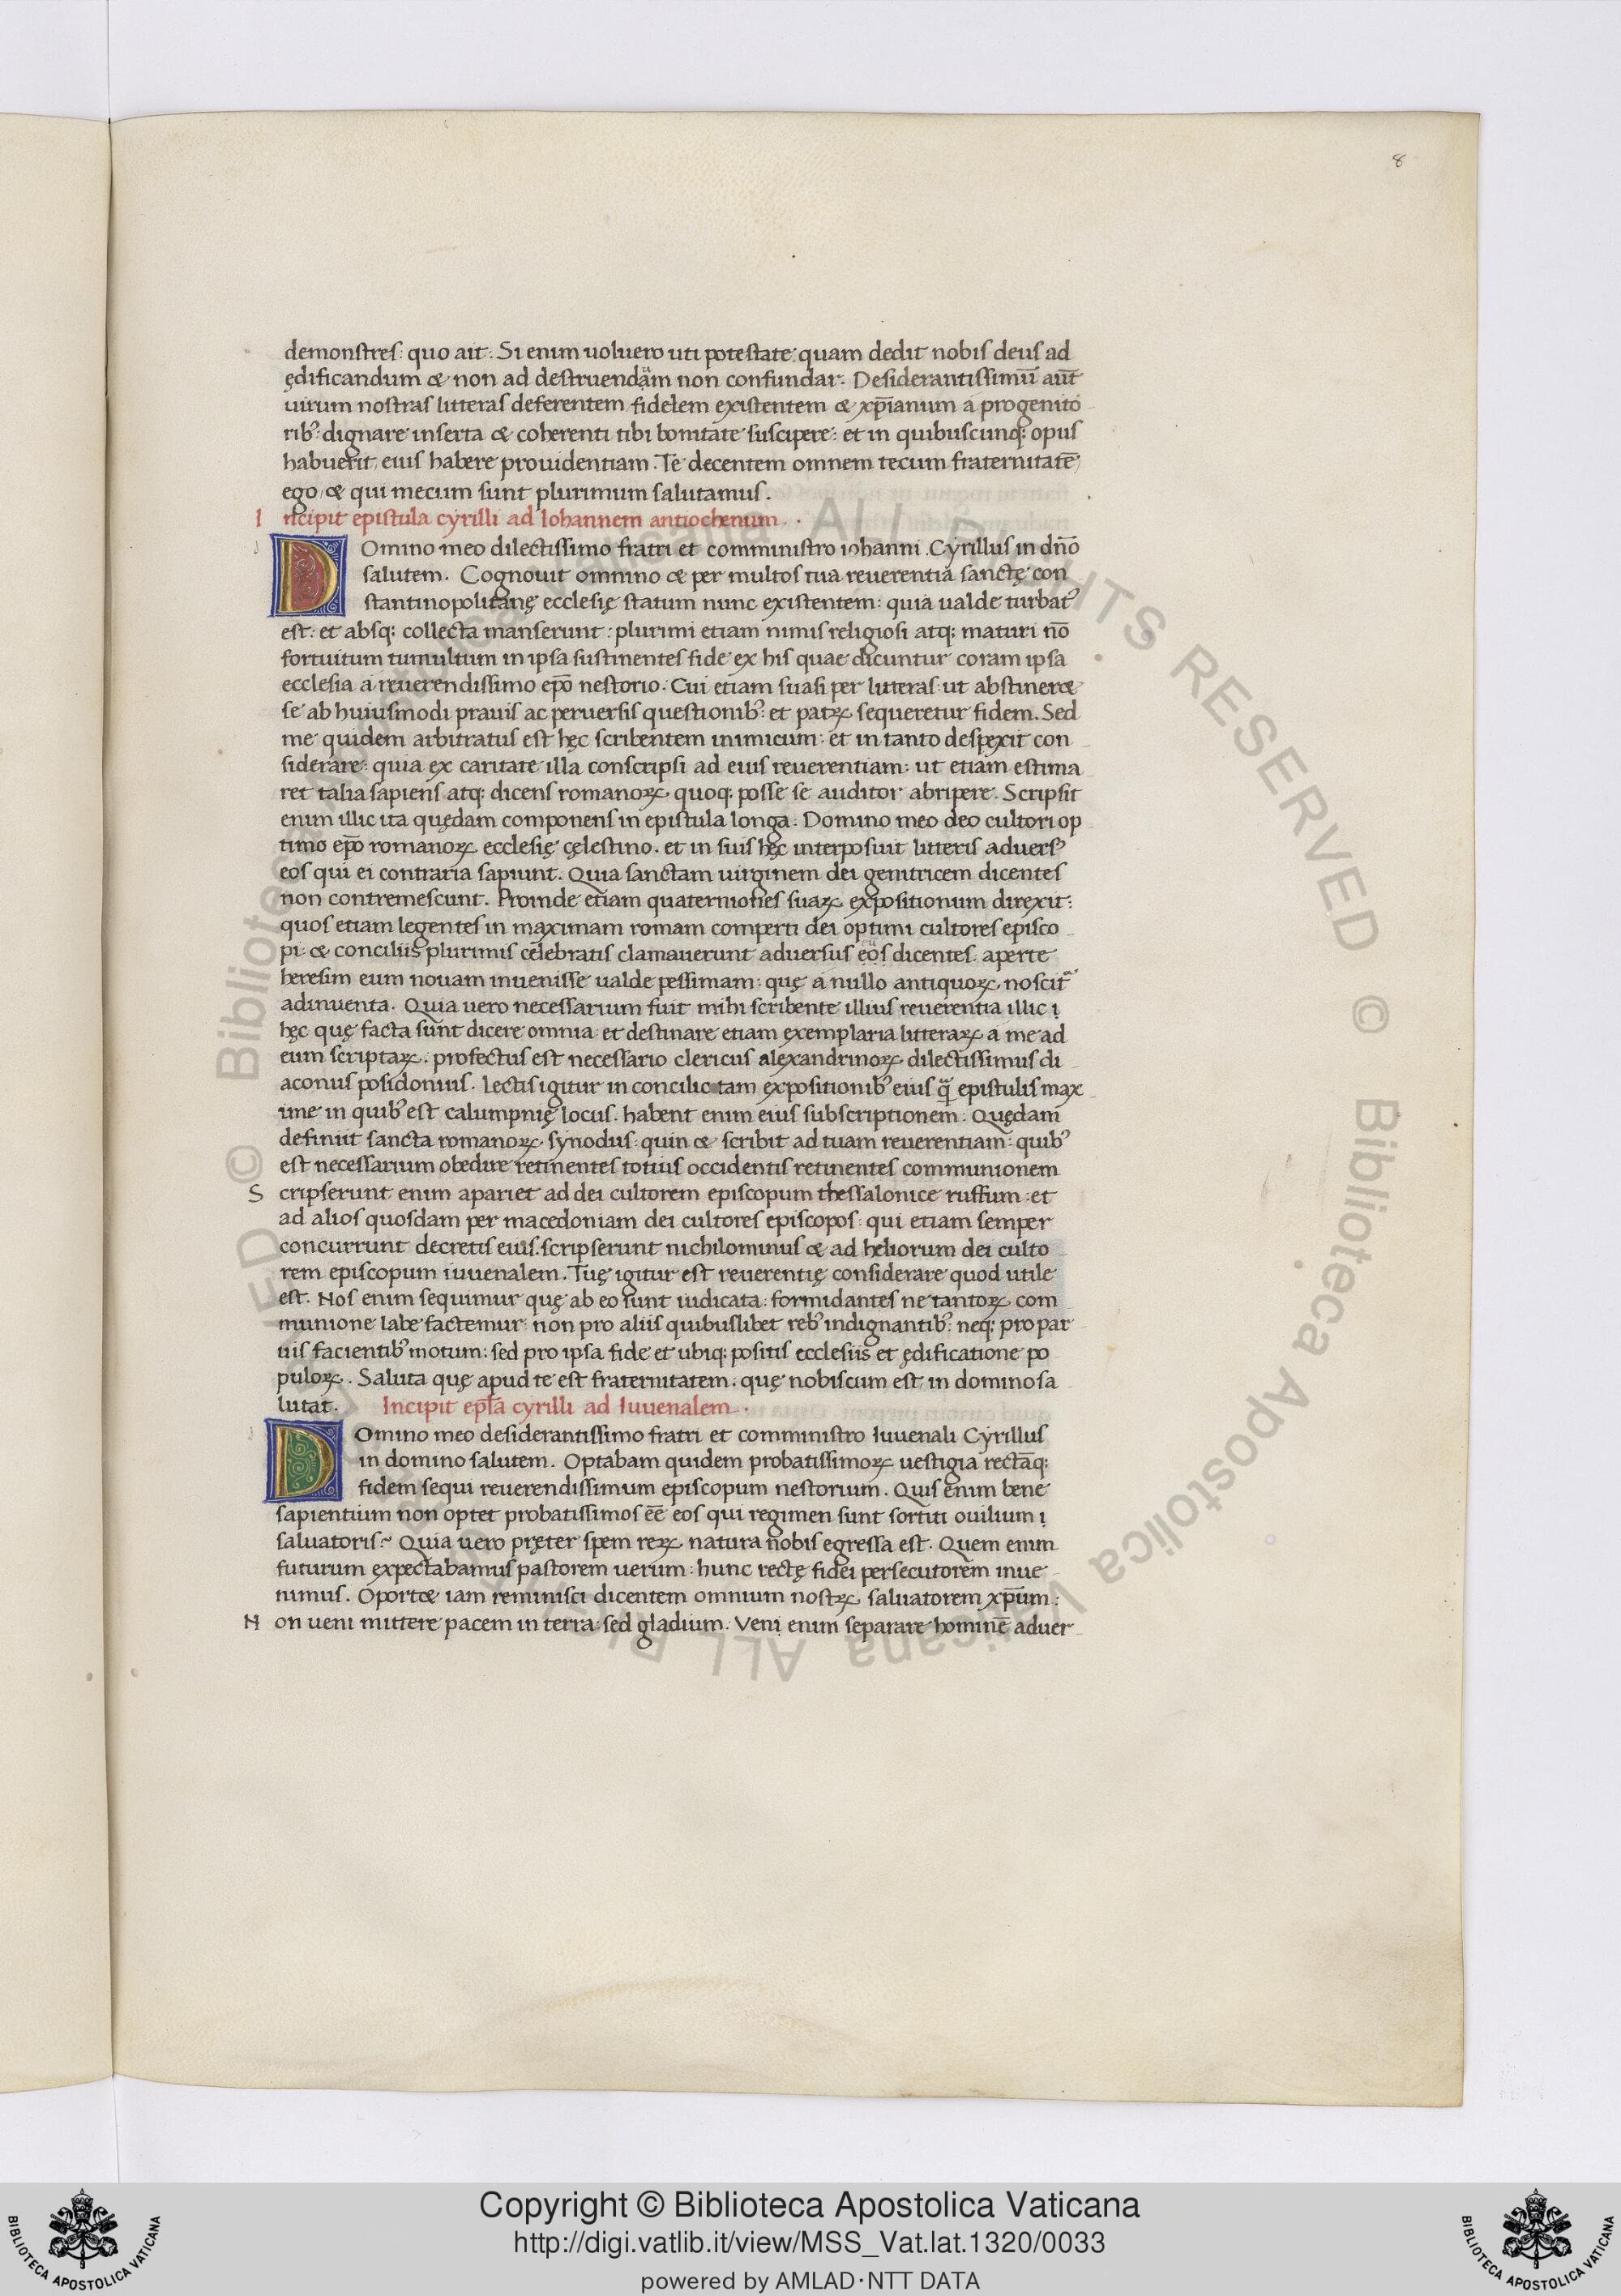 8
demonstres: quo ait: Si enim uoluero uti potestate: quam dedit nobis deus ad
ędificandum & non ad destruendam non confundar. Desiderantissimū aūt
uirum nostras litteras deferentem fidelem existentem & xp̄ianum a progenito
rib: dignare inserta & coherenti tibi bonitate suscipere: et in quibuscunq: opus
habuerit, eius habere prouidentiam. Te decentem omnem tecum fraternitatē
ego & qui mecum sunt plurimum salutamus.
Incipit epistula cyrilli ad Iohannem antiochenum.
DOmino meo dilectissimo fratri et comministro iohanni. Cyrillus in dn̄o
salutem. Cognouit omnino & per multos tua reuerentia sanctę con
stantinopolitanę ecclesię statum nunc existentem: quia ualde turbat᾿
est: et absq: collecta manserunt: plurimi etiam nimis religiosi atq: maturi nō
fortuitum tumultum in ipsa sustinentes fide ex his quae dicuntur coram ipsa
ecclesia a reuerendissimo ep̄o nestorio. Cui etiam suasi per litteras: ut abstiner&
se ab huiusmodi prauis ac peruersis questionib: et patrꝝ sequeretur fidem. Sed
me quidem arbitratus est hęc scribentem inimicum: et in tanto despexit con
siderare: quia ex caritate illa conscripsi ad eius reuerentiam: ut etiam estima
ret talia sapiens atq: dicens romanoꝝ quoq: posse se auditor abripere. Scripsit
enim illic ita quędam componens in epistula longa. Domino meo deo cultori op
timo ep̄o romanoꝝ ecclesię cęlestino. et in suis hęc interposuit litteris aduers᾿
eos qui ei contraria sapiunt. Quia sanctam uirginem dei genitricem dicentes
non contremescunt. Proinde etiam quaterniones suaꝝ expositionum direxit:
quos etiam legentes in maximam romam comperti dei optimi cultores episco
pi: & conciliis plurimis celebratis clamauerunt aduersus eos dicentes: aperte
heresim eum nouam inuenisse ualde pessimam: quę a nullo antiquoꝝ noscit᾿
adinuenta. Quia uero necessarium fuit mihi scribente illius reuerentia illic i
hęc quę facta sunt dicere omnia: et destinare etiam exemplaria litteraꝝ a me ad
eum scriptaꝝ. profectus est necessario clericus alexandrinoꝝ dilectissimus di
aconus posidonius. lectis igitur in concilio tam expositionib᾿ eius q̄ epistulis max
ime in quib᾿ est calumpnię locus. habent enim eius subscriptionem. Quędam
definiit sancta romanoꝝ synodus: quin & scribit ad tuam reuerentiam: quib᾿
est necessarium obedire retinentes totius occidentis retinentes communionem
Scripserunt enim apariet ad dei cultorem episcopum thessalonice ruffum: et
ad alios quosdam per macedoniam dei cultores episcopos: qui etiam semper
concurrunt decretis eius. scripserunt nichilominus & ad heliorum dei culto
rem episcopum iuuenalem. Tuę igitur est reuerentię considerare quod utile
est. Nos enim sequimur quę ab eo sunt iudicata: formidantes ne tantoꝝ com
munione labefactemur: non pro aliis quibuslibet reb᾿ indignantib᾿: neq: pro par
uis facientib᾿ motum: sed pro ipsa fide et ubiq: positis ecclesiis et ędificatione po
puloꝝ. Saluta quę apud te est fraternitatem. quę nobiscum est, in domino sa
lutat. Incipit ep̄la cyrilli ad Iuuenalem.
DOmino meo desiderantissimo fratri et comministro Iuuenali Cyrillus
in domino salutem. Optabam quidem probatissimoꝝ uestigia rectāq:
fidem sequi reuerendissimum episcopum nestorium. Quis enim bene
sapientium non optet probatissimos eē eos qui regimen sunt sortiti ouilium i
saluatoris? Quia uero pręter spem reꝝ natura nobis egressa est. Quem enim
futurum expectabamus pastorem uerum: hunc rectę fidei persecutorem inue
nimus. Oport& iam reminisci dicentem omnium nostꝝ saluatorem xp̄um:
Non ueni mittere pacem in terra: sed gladium. Veni enim separare hominē aduer
© Biblioteca Apostolica Vaticana ALL RIGHTS RESERVED © Biblioteca Apostolica Vaticana ALL RIGHTS RESERVED
Copyright © Biblioteca Apostolica Vaticana
http://digi.vatlib.it/view/MSS_Vat.lat.1320/0033
powered by AMLAD·NTT DATA
BIBLIOTECA APOSTOLICA VATICANA
BIBLIOTECA APOSTOLICA VATICANA